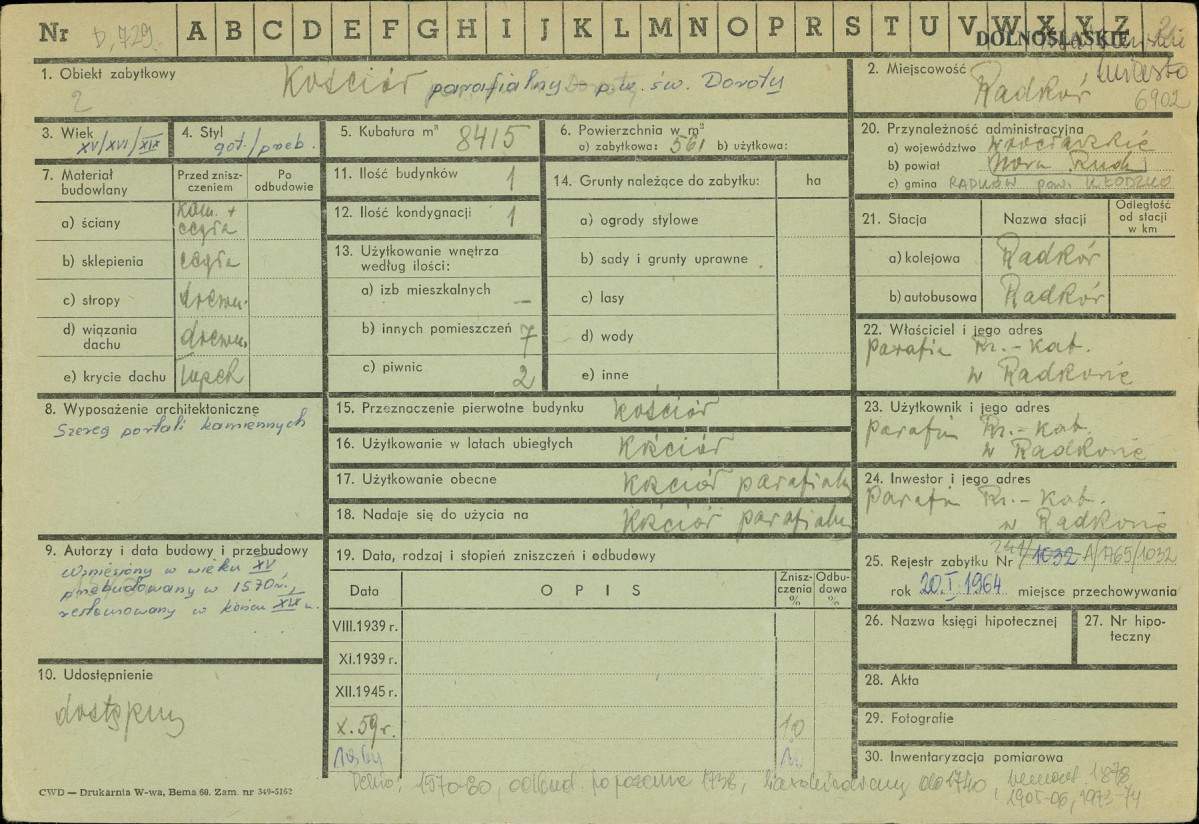 Nr D, 729. A B C D E F G H I J K L M N O P R S T U V W X Y Z
DOLNOŚLĄSKIE
miasto
6902
1. Obiekt zabytkowy Kościół parafialny p.w. św. Doroty
2
2. Miejscowość
Radków
3. Wiek
XV/XVI/XIX
4. Styl
got./przeb.
5. Kubatura m³ 8415
6. Powierzchnia w m²
a) zabytkowa: 561 b) użytkowa:
7. Materiał budowlany
Przed zniszczeniem
Po odbudowie
a) ściany kam. + cegła
b) sklepienia cegła
c) stropy drewn.
d) wiązania dachu drewn.
e) krycie dachu łupek
11. Ilość budynków 1
12. Ilość kondygnacji 1
13. Użytkowanie wnętrza
według ilości:
a) izb mieszkalnych –
b) innych pomieszczeń 7
c) piwnic 2
14. Grunty należące do zabytku: ha
a) ogrody stylowe
b) sady i grunty uprawne
c) lasy
d) wody
e) inne
20. Przynależność administracyjna
a) województwo wrocławskie
b) powiat Nowa Ruda
c) gmina RADKÓW pow. KŁODZKO
21. Stacja Nazwa stacji Odległość od stacji w km
a) kolejowa Radków
b) autobusowa Radków
22. Właściciel i jego adres
Parafia Rz.-kat.
w Radkowie
8. Wyposażenie architektoniczne
Szereg portali kamiennych
15. Przeznaczenie pierwotne budynku Kościół
16. Użytkowanie w latach ubiegłych Kościół
17. Użytkowanie obecne Kościół parafialn
18. Nadaje się do użycia na Kościół parafialn
23. Użytkownik i jego adres
Parafia Rz.-kat.
w Radkowie
24. Inwestor i jego adres
Parafia Rz.-kat.
w Radkowie
9. Autorzy i data budowy i przebudowy
Wzniesiony w wieku XV
przebudowany w 1570 r.,
restaurowany w końcu XIX w.
10. Udostępnienie
dostępny
19. Data, rodzaj i stopień zniszczeń i odbudowy
Data OPIS Zniszczenia % Odbudowa %
VIII.1939 r.
XI.1939 r.
XII.1945 r.
X.59 r. 10
25. Rejestr zabytku Nr /1032 A/1765/1032
rok 20.I.1964 miejsce przechowywania
26. Nazwa księgi hipotecznej
27. Nr hipoteczny
28. Akta
29. Fotografie
30. Inwentaryzacja pomiarowa
Dehio: 1570-80, odbud. po pożarze 1738, do 1740, remont 1878
1905-06, 1973-74
CWD — Drukarnia W-wa, Bema 60. Zam. nr 349-5162